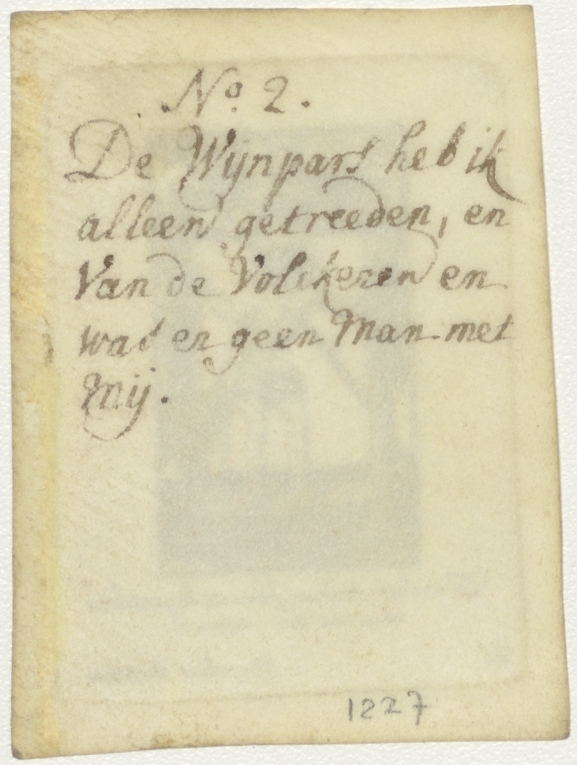 No. 2.
De Wijnpars heb ik
alleen getreeden, en
Van de Volckeren en
was er geen Man met
Mij.
1227